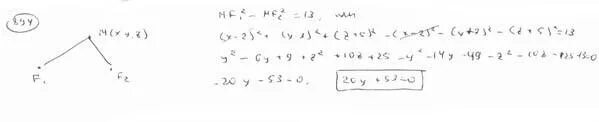 894
M(x y, z)
F₁
F₂
MF₁² - MF₂² = 13, или
(x-2)² + (y-3)² + (z+5)² - (x-2)² - (y+7)² - (z+5)² = 13
y² - 6y + 9 + z² + 10z + 25 - y² - 14y - 49 - z² - 10z - 25 - 13 = 0
-20y - 53 = 0.
20y + 53 = 0